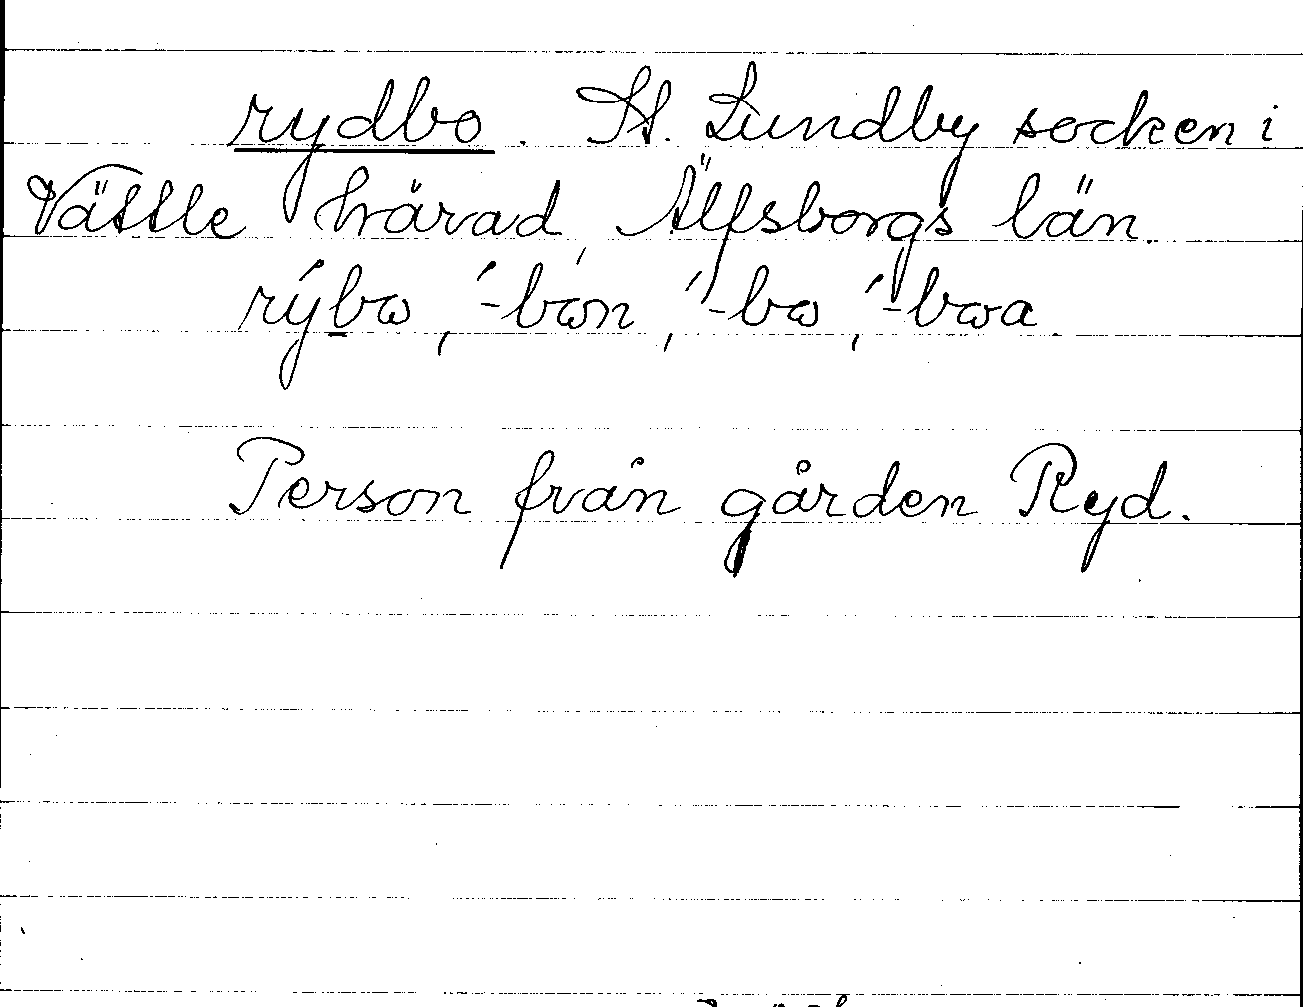 rydbo. St. Lundby socken i
Vättle härad, Älfsborgs län.
rýbω, ´-bωn, ´-bω, ´-bωa.
Person från gården Ryd.